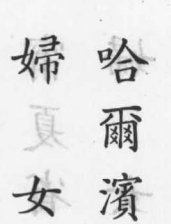 哈爾濱
婦女